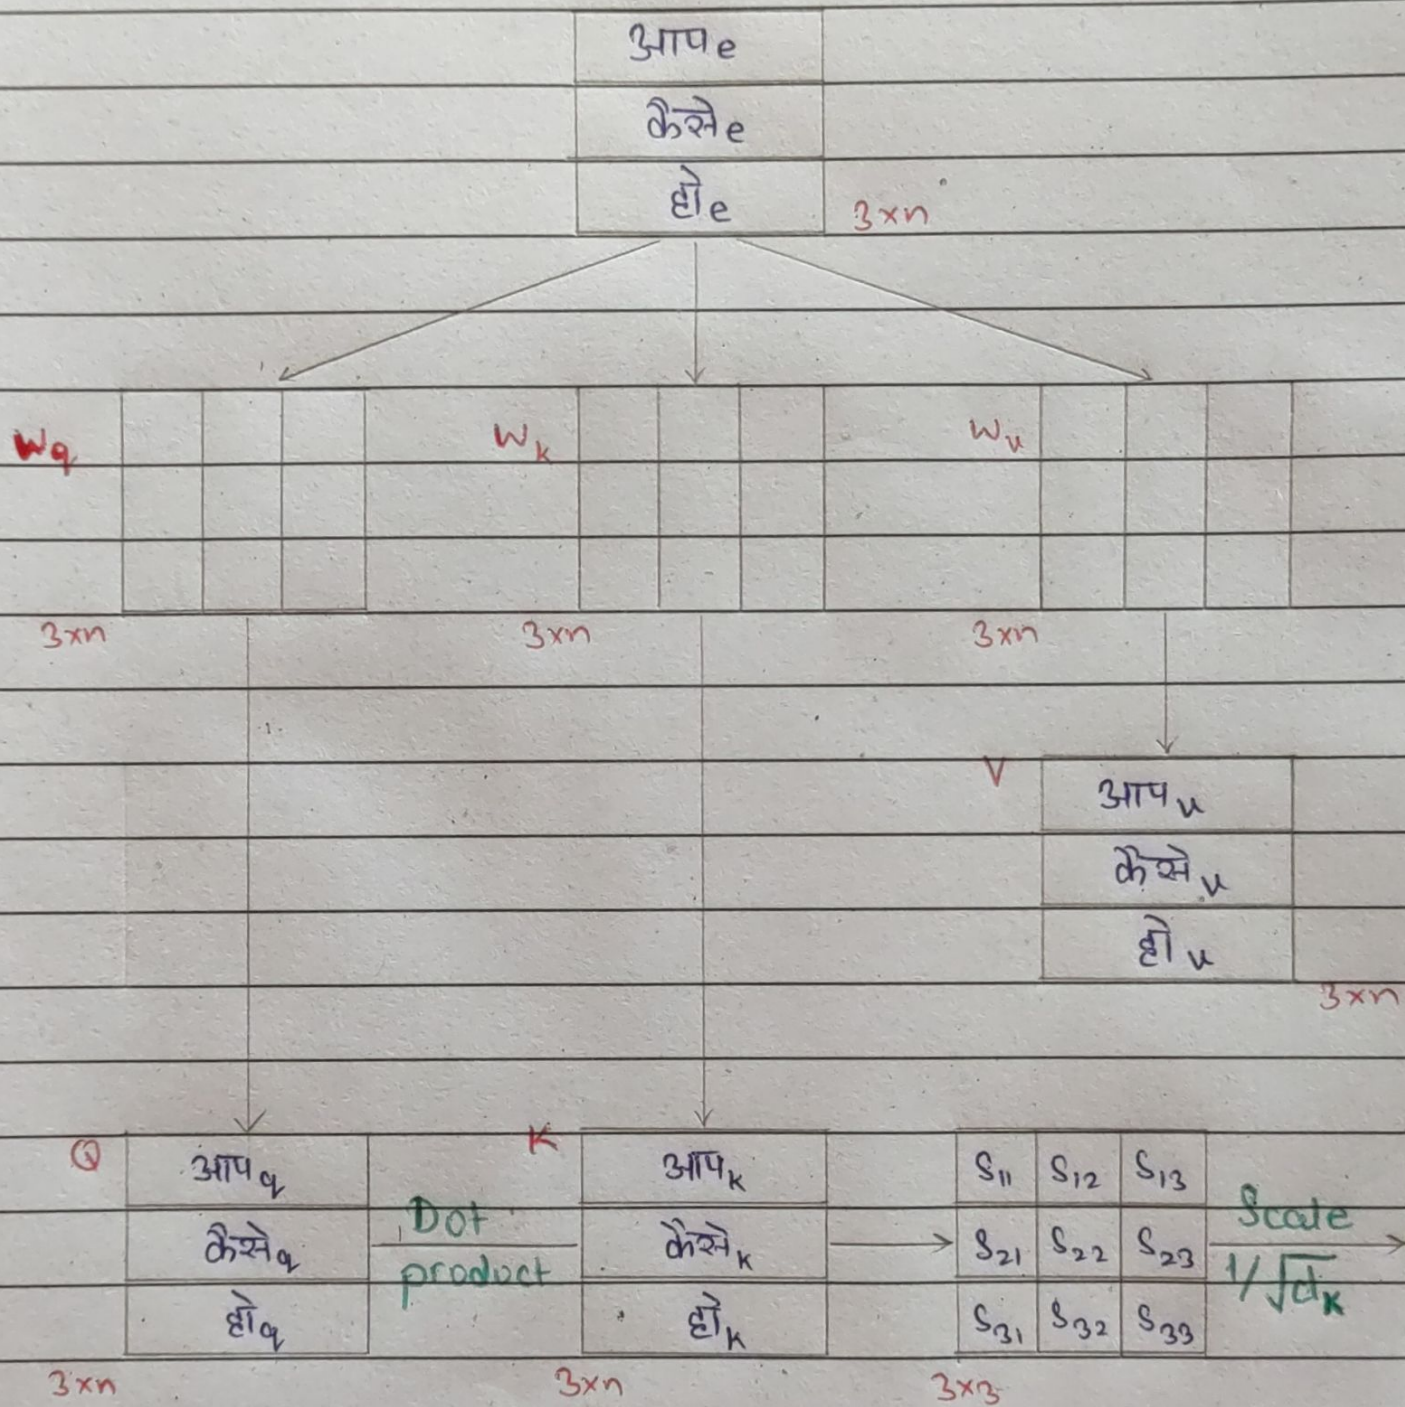 आपe
कैसेe
होe
3×n
Wq
Wk
Wv
3×n
3×n
3×n
V
आपv
कैसेv
होv
3×n
Q
आपq
कैसेq
होq
3×n
Dot
product
K
आपk
कैसेk
होk
3×n
S11 S12 S13
S21 S22 S23
S31 S32 S33
3×3
Scale
1/√dk